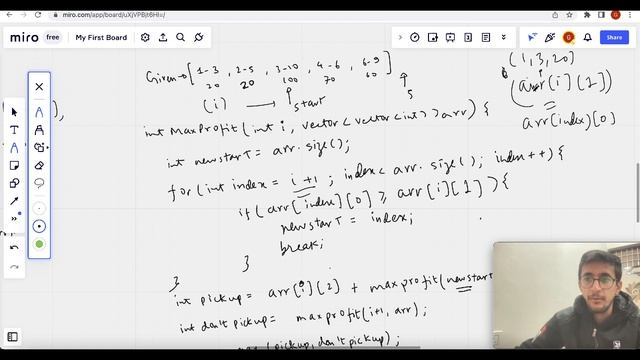 miro.com/app/board/uXjVPBjt6HI=/
miro free My First Board
G Share
Given → [ 1-3 , 2-5 , 3-10 , 4-6 , 6-9 ]
20 20 100 70 60
(i) → start 5
(1, 3, 20)
(arr[i][2])
arr[index][0]
int maxProfit(int i, vector<vector<int>> arr) {
int newstart = arr.size();
for(int index = i+1; index < arr.size(); index++) {
if(arr[index][0] ≥ arr[i][1]) {
newstart = index;
break;
}
}
int pickup = arr[i][2] + maxprofit(newstart
int don't pickup = maxprofit(i+1, arr);
(pickup, don't pickup);